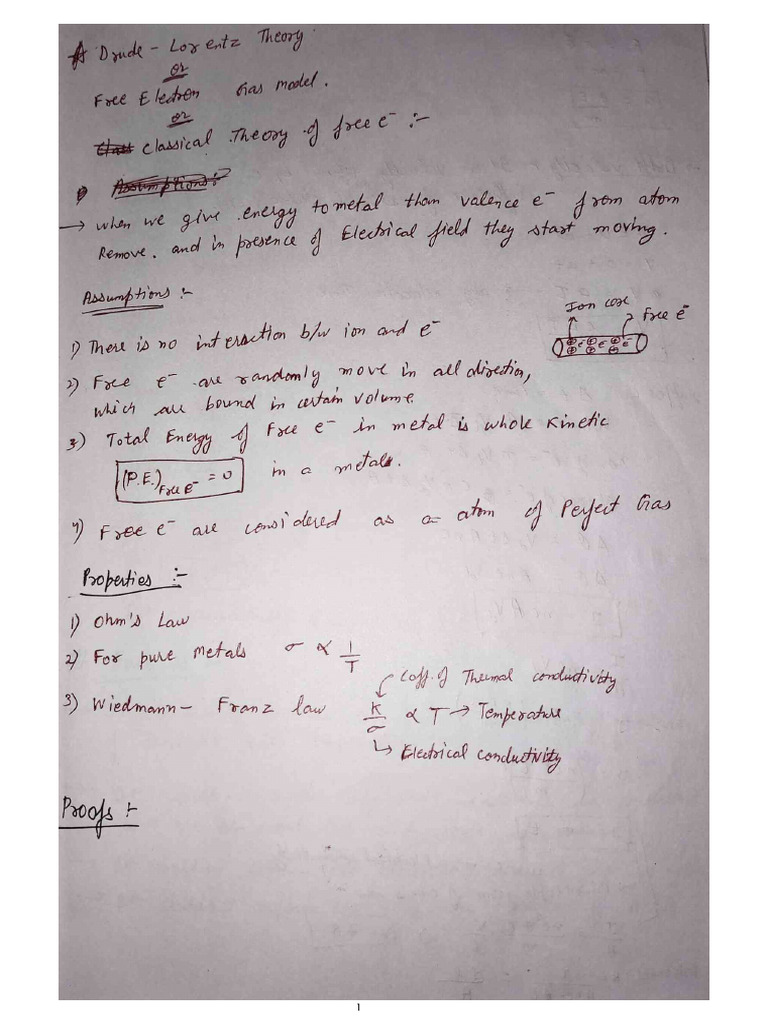 Drude - Lorentz Theory
or
Free Electron Gas model.
or
Classical Theory of free e⁻ :-
Assumptions :-
→ when we give energy to metal than valence e⁻ from atom
Remove. and in presence of Electrical field they start moving.
Assumptions :-
Ion core
Free e⁻
1) There is no interaction b/w ion and e⁻
2) Free e⁻ are randomly move in all direction,
which are bound in certain volume
3) Total Energy of Free e⁻ in metal is whole Kinetic
(P.E.)Free e⁻ = 0 in a metals.
4) Free e⁻ are considered as a atom of Perfect Gas
Properties :-
1) Ohm's Law
2) For pure metals σ ∝ 1/T
3) Wiedmann - Franz law K/σ ∝ T → Temperature
Coff. of Thermal conductivity
Electrical conductivity
Proofs :-
1